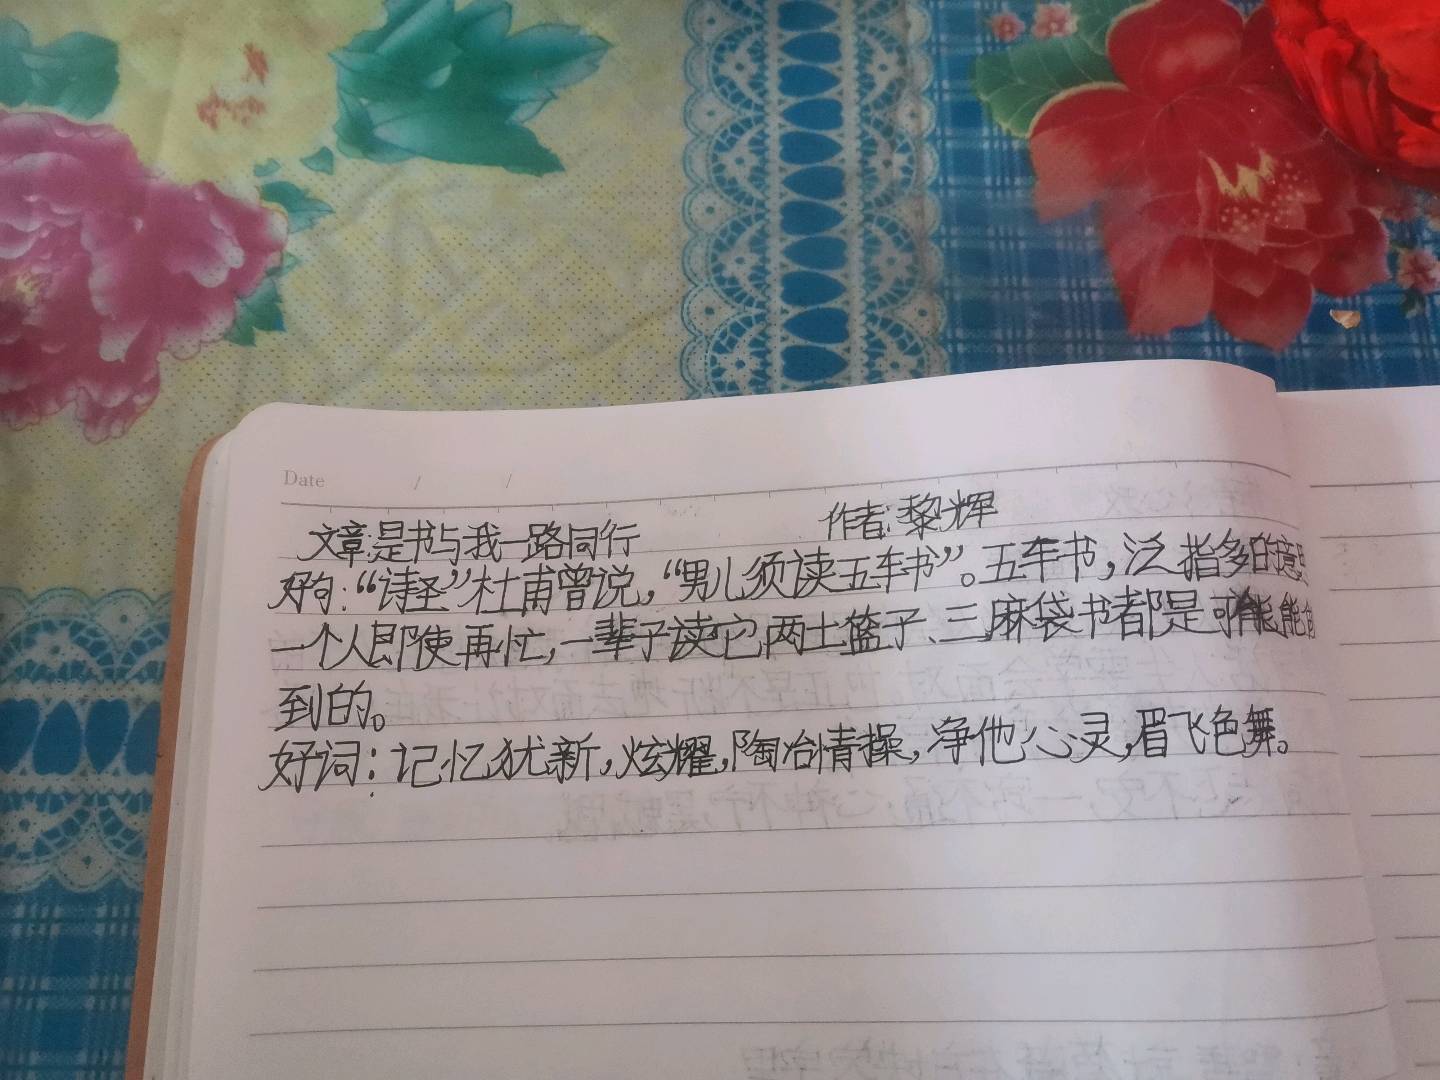 Date / /
文章:是书与我一路同行 作者:黎辉
好句:“诗圣”杜甫曾说,“男儿须读五车书”。五车书,泛指多的意思
一个人即使再忙,一辈子读它两土篮子、三麻袋书都是可能能
到的。
好词:记忆犹新,炫耀,陶冶情操,净他心灵,眉飞色舞。